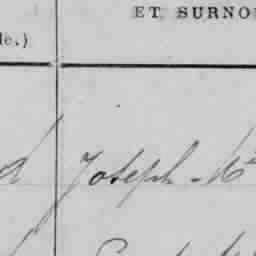 ET SURNO
le.)
Joseph Mc